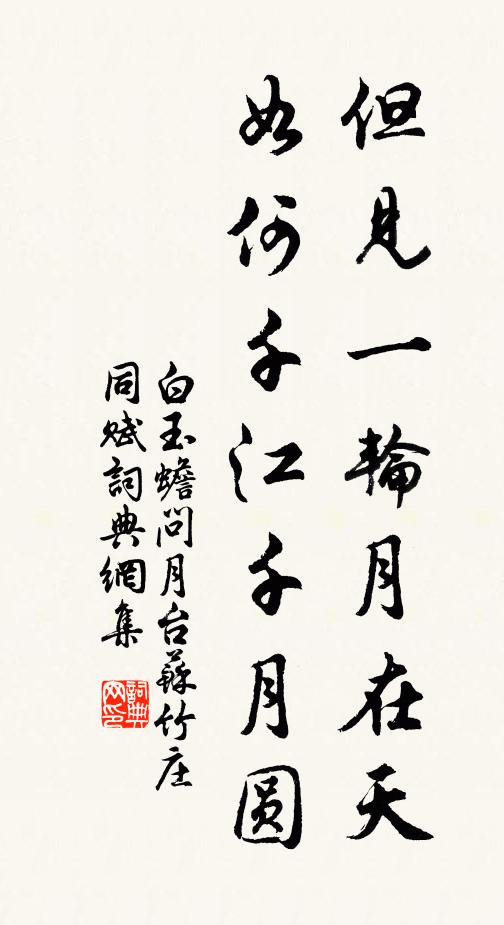 但見一輪月在天
如何千江千月圆
白玉蟾問月台蘇竹庄
同赋詞典網集
詞典
网印